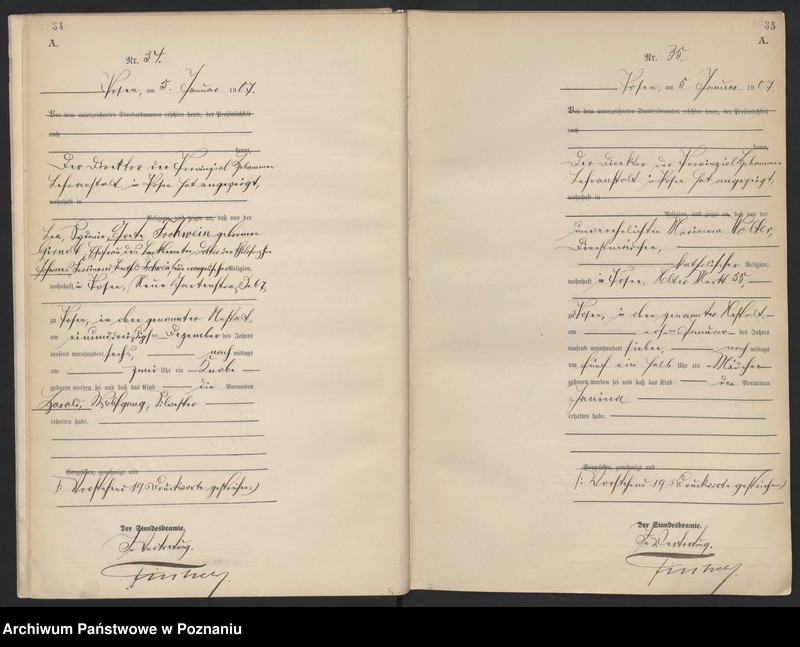 34
A.
Nr. 34.
Posen, am 5. Januar 1907.
Vor dem unterzeichneten Standesbeamten erschien heute, der Persönlichkeit
nach
kannt,
Der Direktor der Provinzial Hebammen
Lehranstalt in Posen hat angezeigt,
wohnhaft in
Religion, und zeigte an, daß von der
Frohwein geborenen
Ehefrau des
Religion,
wohnhaft in Posen, Neue Gartenstraße 67,
zu Posen, in oben genannter Anstalt
am einunddreißigsten Dezember des Jahres
tausend neunhundert sechs, nachmittags
um zwei Uhr ein Knabe
geboren worden sei und daß das Kind die Vornamen
Harald, Wolfgang, Silvester
erhalten habe.
Vorgelesen, genehmigt und
/: Vorstehend 19 Druckworte gestrichen :/
Der Standesbeamte.
In Vertretung.
35
A.
Nr. 35.
Posen, am 5. Januar 1907.
Vor dem unterzeichneten Standesbeamten erschien heute, der Persönlichkeit
nach
kannt,
Der Direktor der Provinzial Hebammen
Lehranstalt in Posen hat angezeigt,
wohnhaft in
Religion, und zeigte an, daß von der
unverehelichten Marianna
Dienstmädchen,
katholischer Religion,
wohnhaft in Posen, Alter Markt 55,
zu Posen, in oben genannter Anstalt
am ersten Januar des Jahres
tausend neunhundert sieben, nachmittags
um fünf ein halb Uhr ein Mädchen
geboren worden sei und daß das Kind den Vornamen
Janina
erhalten habe.
Vorgelesen, genehmigt und
/: Vorstehend 19 Druckworte gestrichen :/
Der Standesbeamte.
In Vertretung.
Archiwum Państwowe w Poznaniu